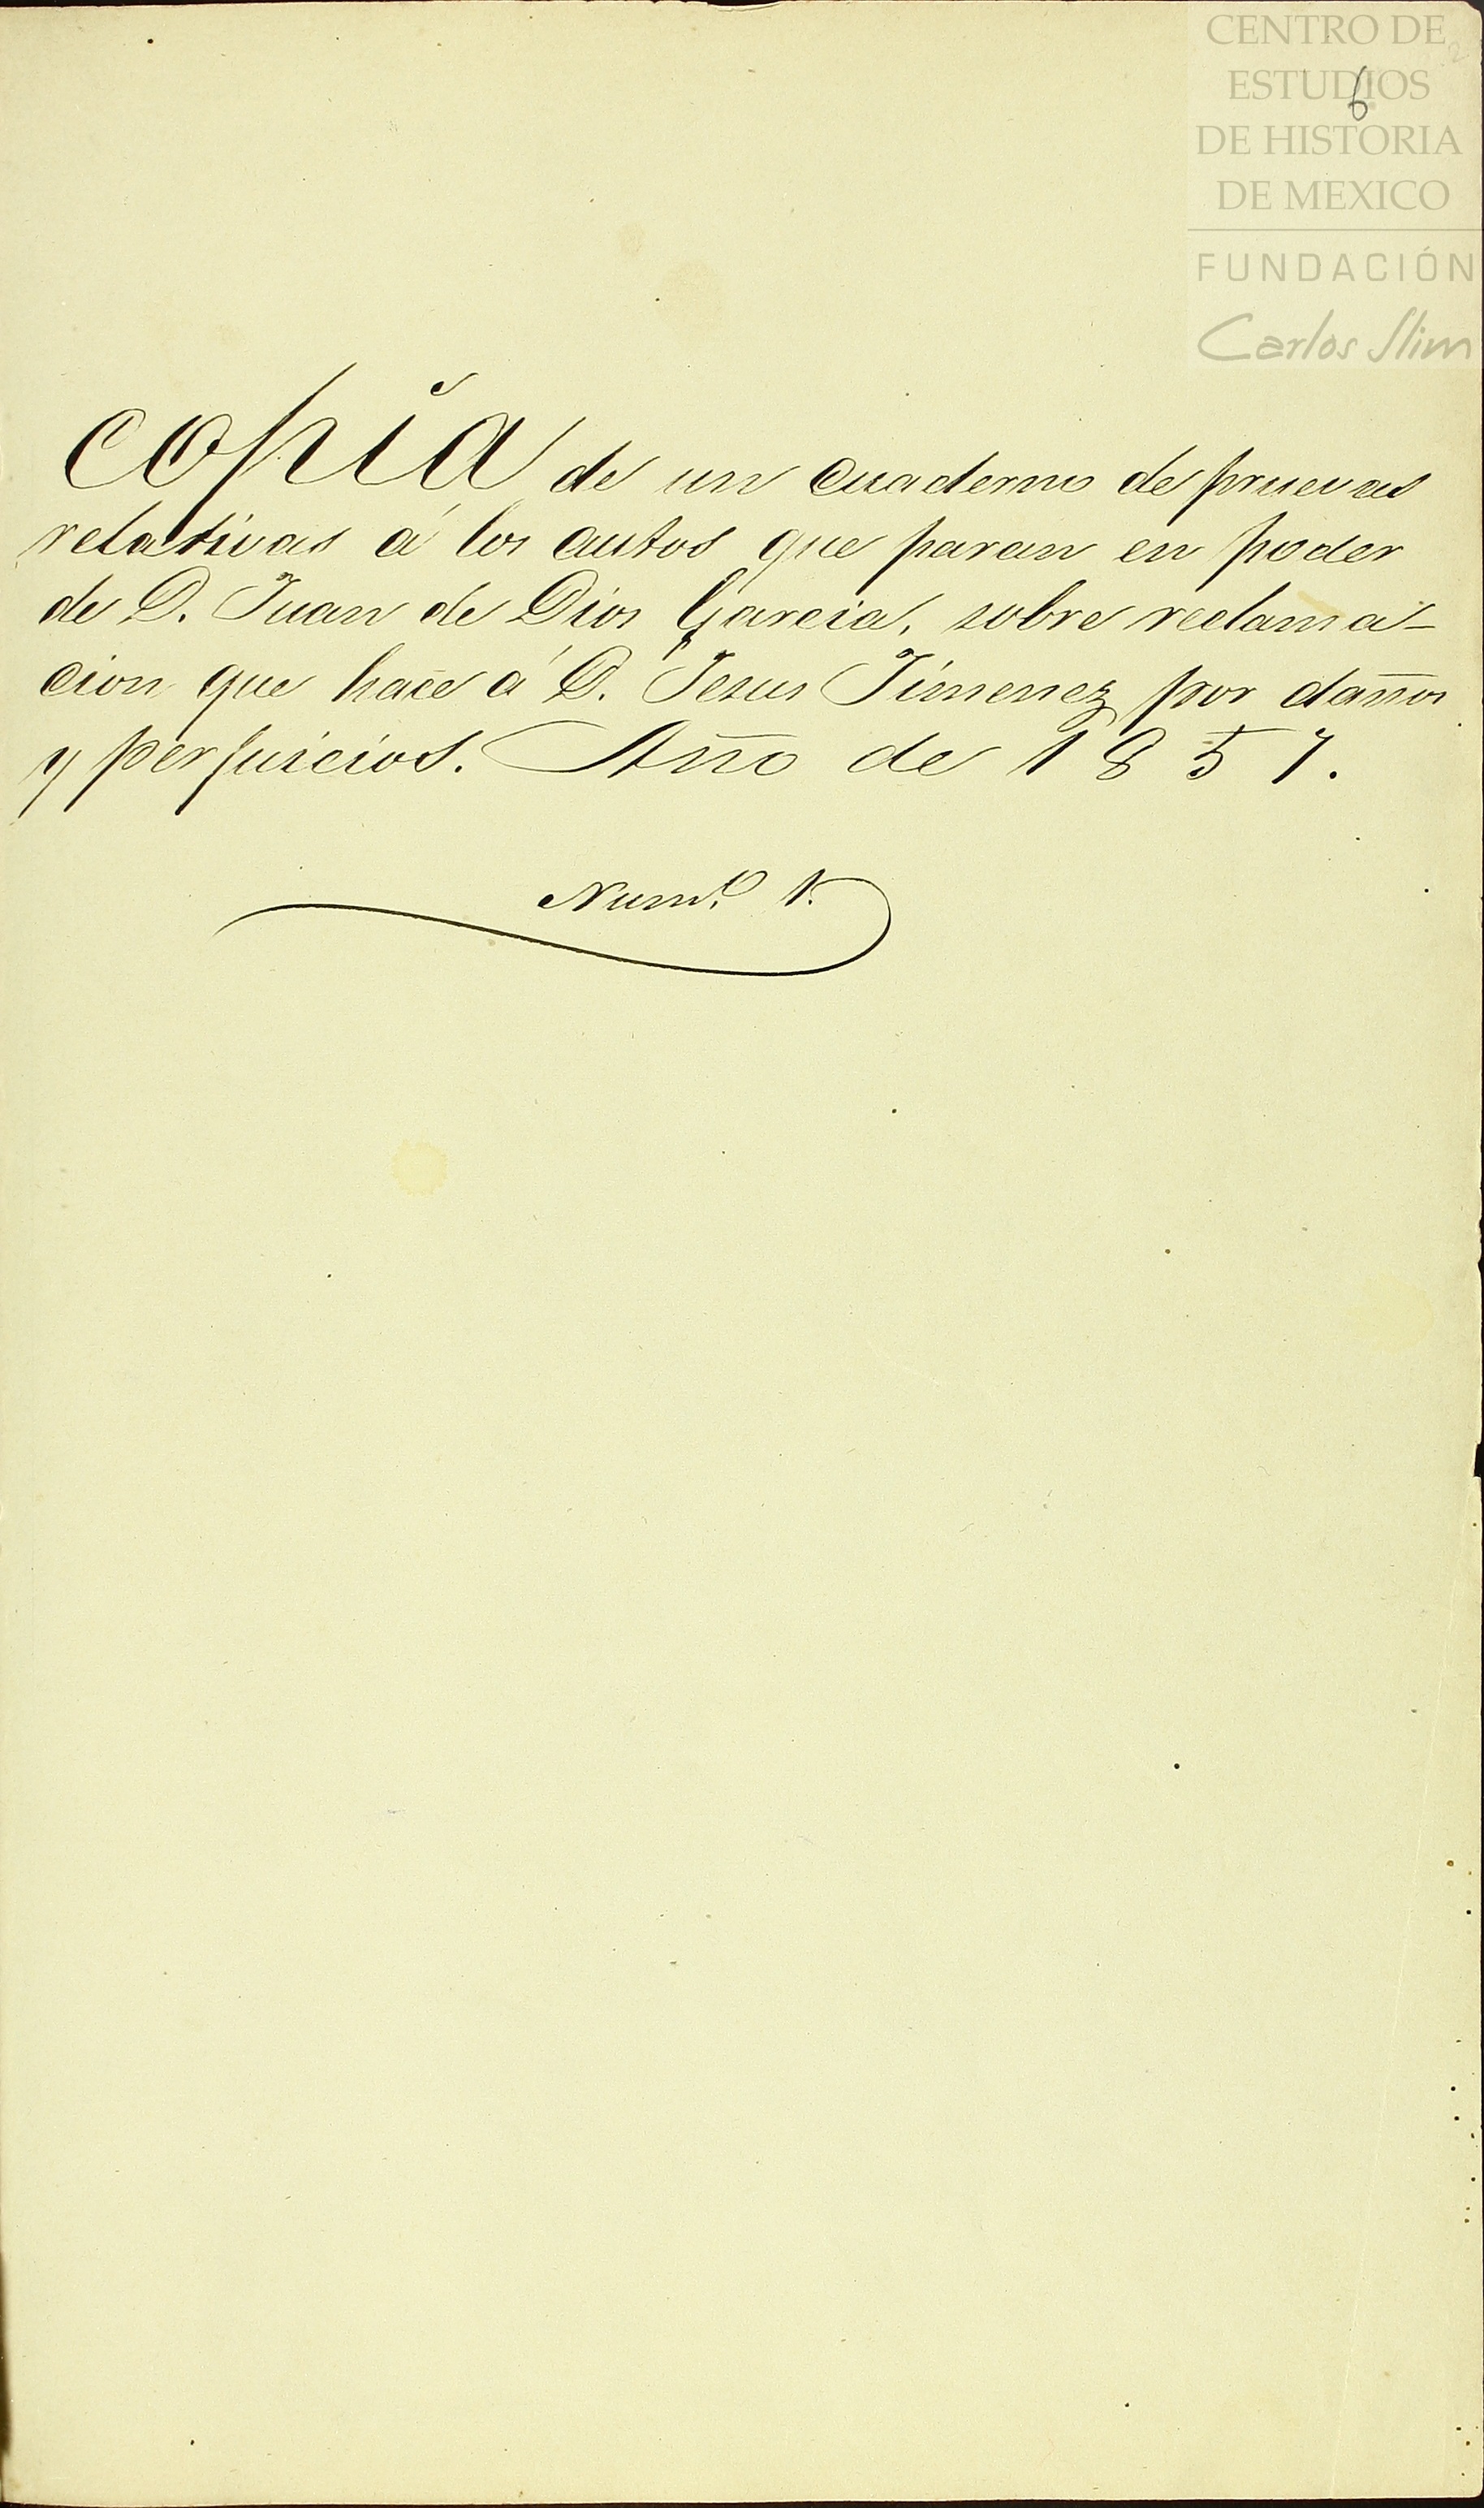 CENTRO DE
ESTUDIOS
6
DE HISTORIA
DE MEXICO
FUNDACIÓN
Carlos Slim
Copia de un cuaderno de pruevas
relativas á los autos que paran en poder
de D. Juan de Dios Garcia, sobre reclama-
cion que hace á D. Jesus Jimenez por daños
y perjuicios. Año de 1857.
Num.º 1.